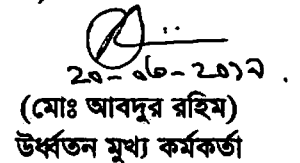 ২০-০৬-২০১৭.
(মোঃ আবদুর রহিম)
উর্ধ্বতন মুখ্য কর্মকর্তা